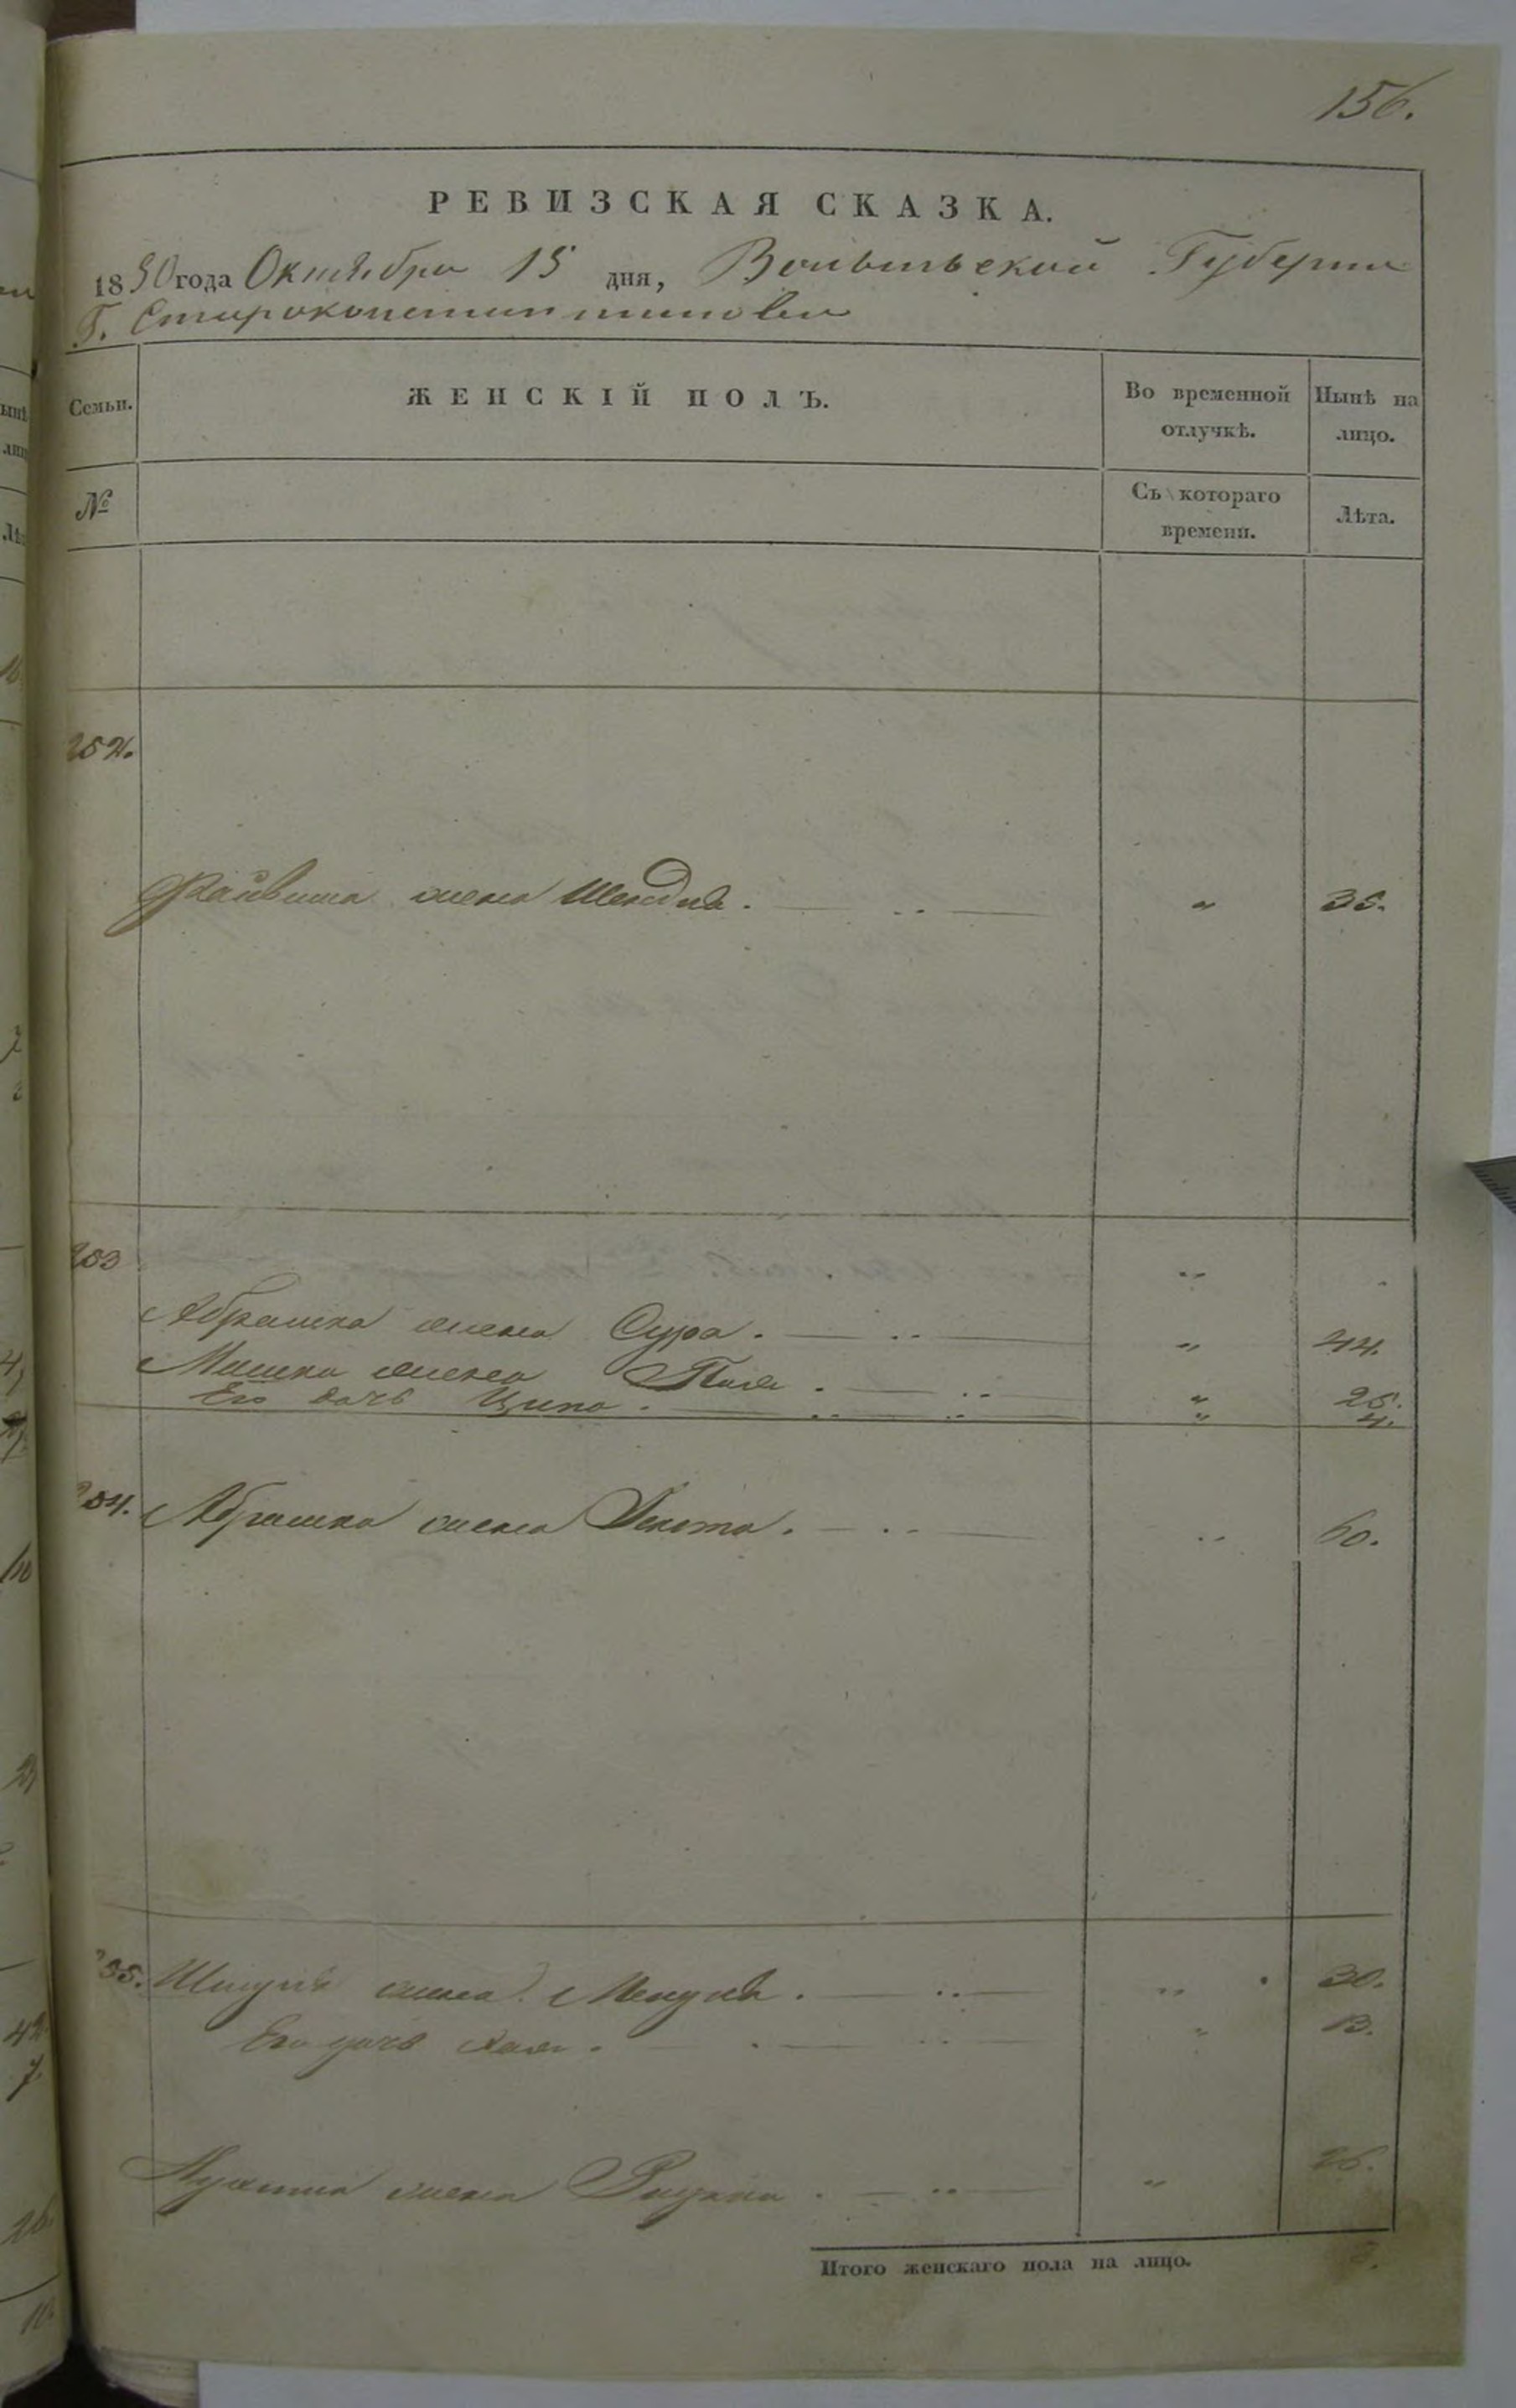 156.
РЕВИЗСКАЯ СКАЗКА.
1850 года Октября 15 дня, Волынской Губернии
Г. Староконстантинова
Семьи. ЖЕНСКІЙ ПОЛЪ. Во временной отлучкѣ. Нынѣ на лицо.
№ Съ котораго времени. Лѣта.
252.
Файвиша жена Шендля. „ 35.
253 „
Абрамка жена Сура. „ 44.
Мошка жена „ 25.
Его дочь Ципа. „ 4.
254. Абрамка жена „ 60.
255. жена „ 30.
Его дочь Хая. „ 13.
жена „ 26.
Итого женскаго пола на лицо. 8.